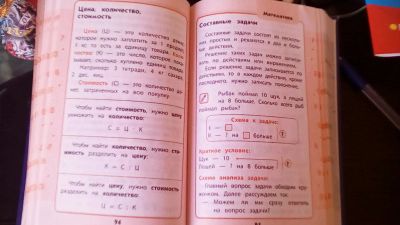 Цена, количество,
стоимость
Цена (Ц) — это количество денег,
которое нужно заплатить за 1 предмет,
1 кг, то есть за единицу товара. Коли-
чество (К) — это число, которое пока-
зывает, сколько куплено единиц товара.
Например: 3 тетради, 4 кг сахара,
2 дес. яиц.
Стоимость (С) — это количество де-
нег, затраченных на всю покупку.
Чтобы найти стоимость, нужно цену
умножить на количество:
С = Ц · К
Чтобы найти количество, нужно стои-
мость разделить на цену:
К = С : Ц
Чтобы найти цену, нужно стоимость
разделить на количество:
Ц = С : К
94
Математика
Составные задачи
Составные задачи состоят из несколь-
ких простых и решаются в два и боль-
ше действия.
Решение таких задач можно записать
по действиям или выражением.
Если решение задачи записывается по
действиям, то в каждом действии, кроме
последнего, нужно записать пояснение.
Рыбак поймал 10 щук, а лещей
на 8 больше. Сколько всего рыб
поймал рыбак?
Схема к задаче:
I —
II — ? на больше ?
Краткое условие:
Щук — 10
Лещей — ? на 8 больше ?
Схема анализа задачи:
Главный вопрос задачи обводим кру-
жочком. Далее рассуждаем так.
— Можем ли мы сразу ответить
на вопрос задачи?
95